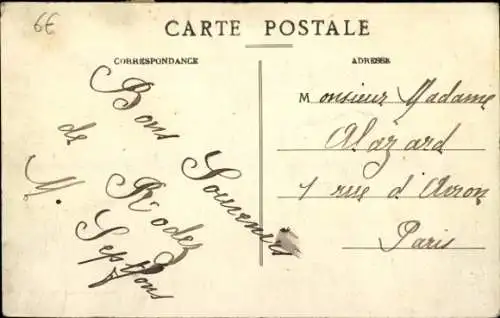 6€
CARTE POSTALE
CORRESPONDANCE
ADRESSE
Bons Souvenirs
de Rodez
M. Septfons
Monsieur Madame
Alazard
1 rue d'Avron
Paris